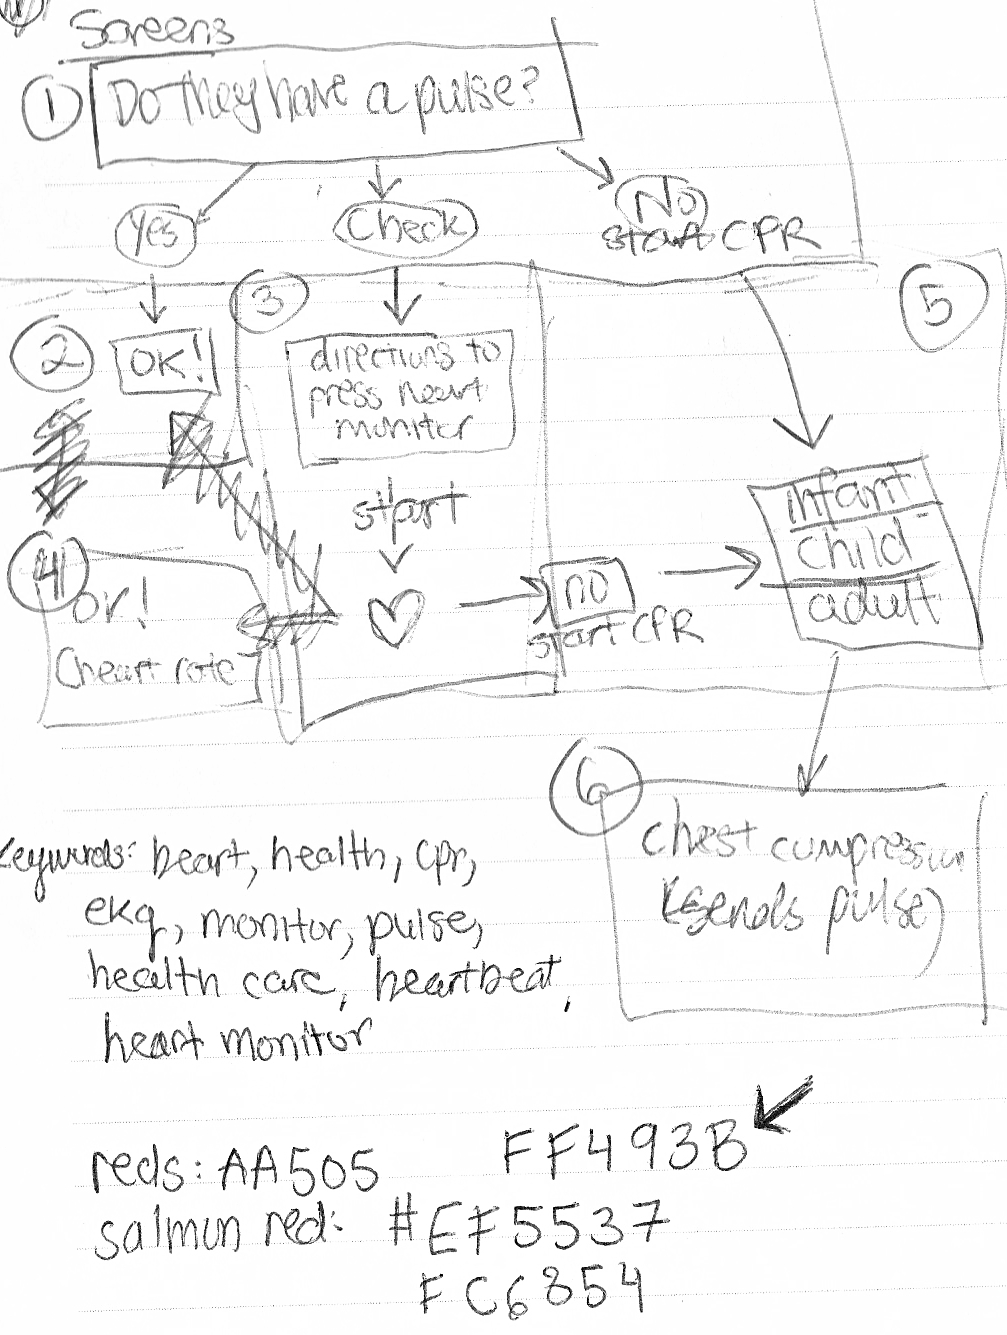 Screens
1 Do they have a pulse?
Yes
Check
No
start CPR
2
OK!
3
directions to
press heart
monitor
start
4
or!
(heart rate
no
start CPR
5
infant
child
adult
6
chest compression
(sends pulse)
Keywords: heart, health, cpr,
ekg, monitor, pulse,
health care, heartbeat,
heart monitor
reds: AA505
FF493B
salmon red: #EF5537
FC6854